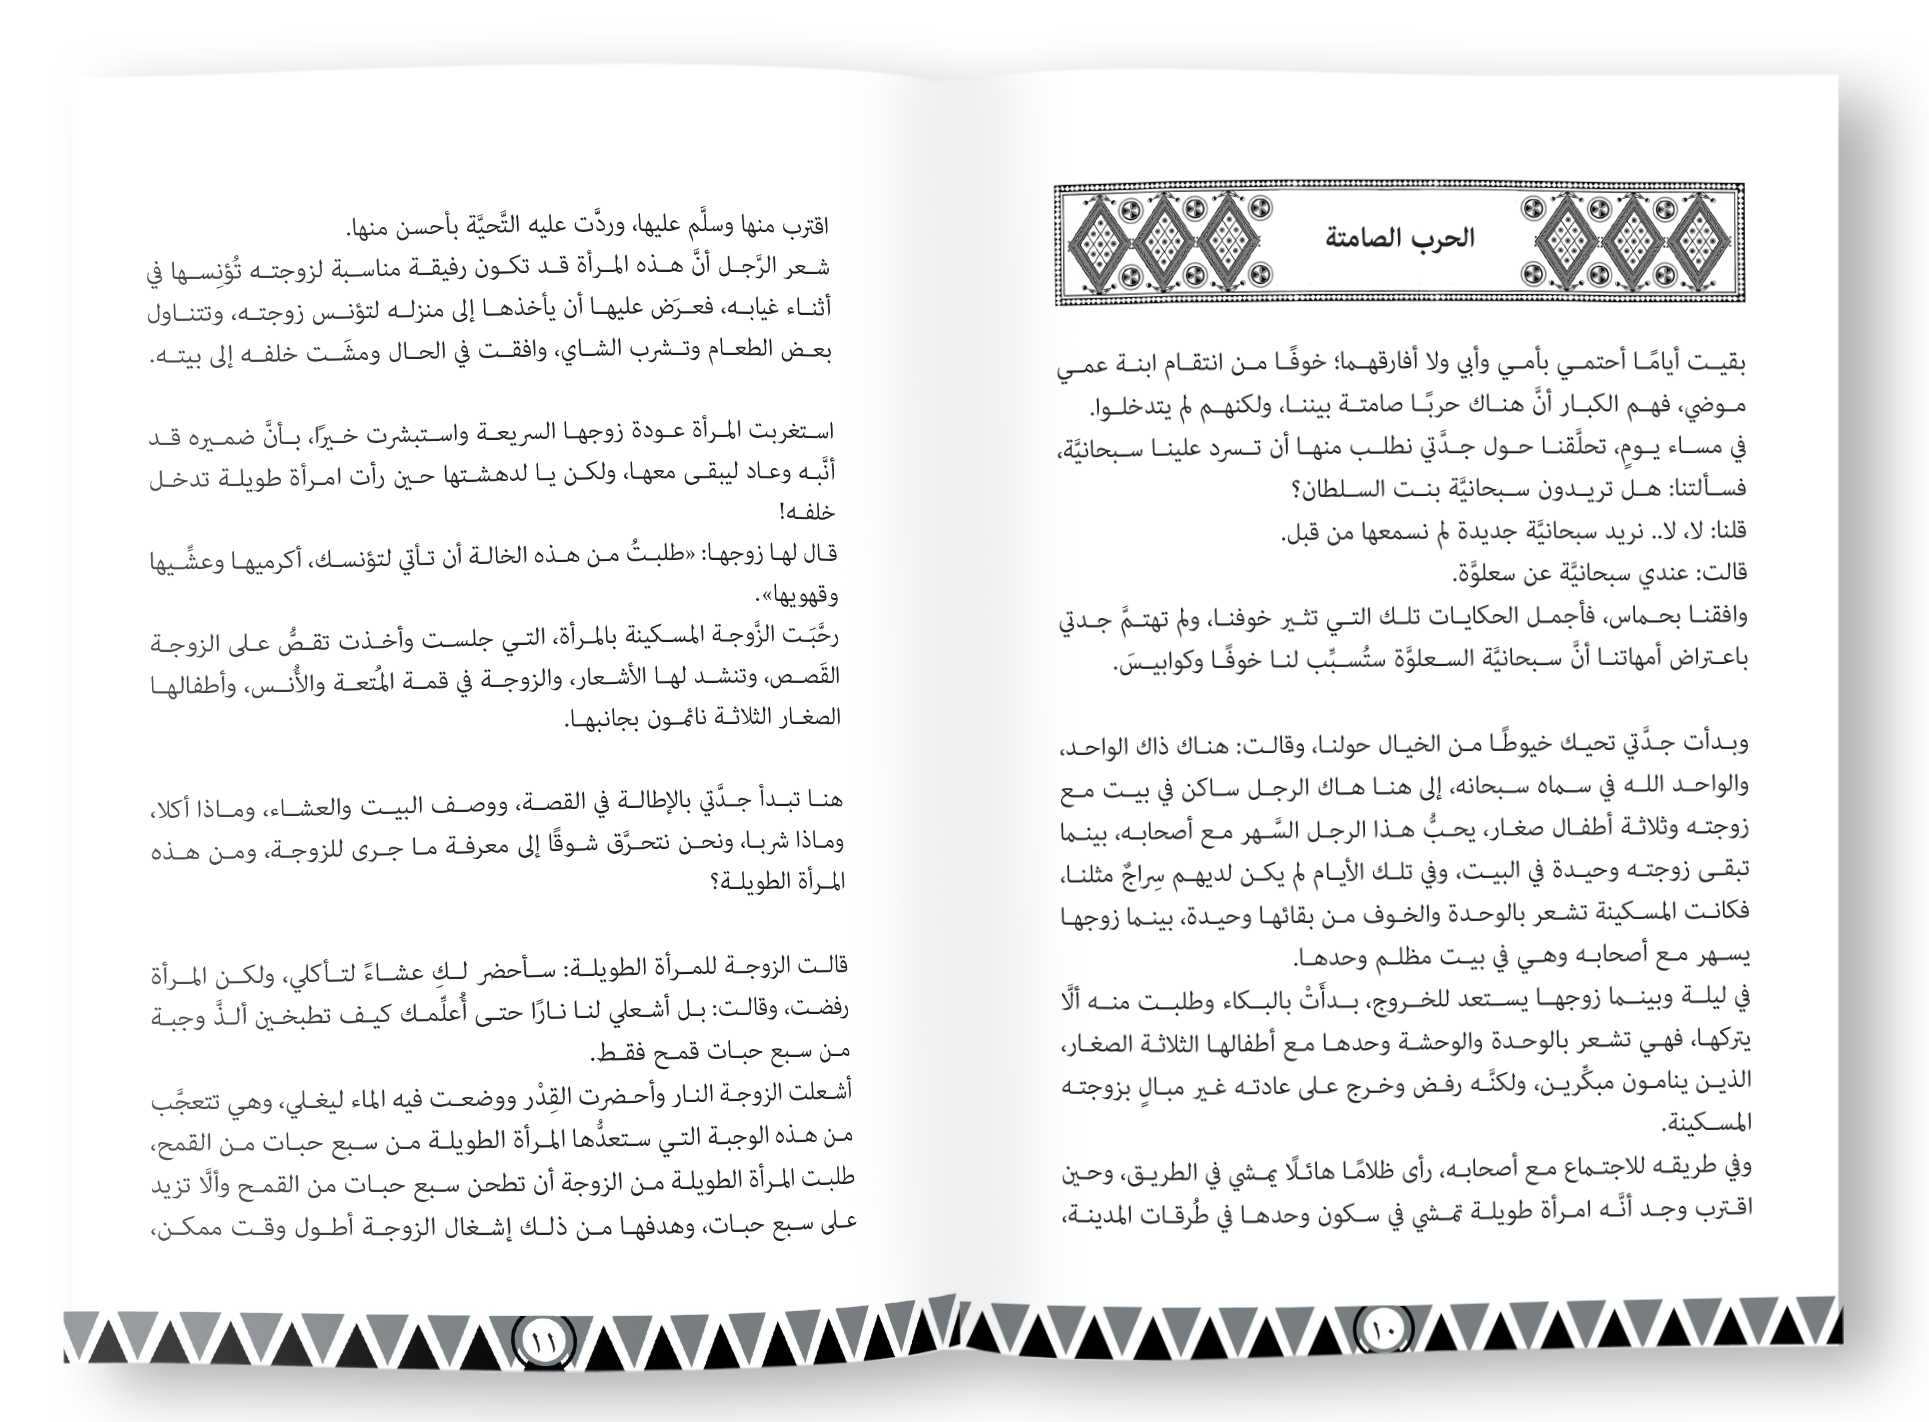 الحرب الصامتة
بقيت أيامًا أحتمي بأمي وأبي ولا أفارقهما؛ خوفًا من انتقام ابنة عمي
موضي، فهم الكبار أنَّ هناك حربًا صامتة بيننا، ولكنهم لم يتدخلوا.
في مساء يومٍ، تحلَّقنا حول جدَّتي نطلب منها أن تسرد علينا سبحانيَّة،
فسألتنا: هل تريدون سبحانيَّة بنت السلطان؟
قلنا: لا، لا.. نريد سبحانيَّة جديدة لم نسمعها من قبل.
قالت: عندي سبحانيَّة عن سعلوَّة.
وافقنا بحماس، فأجمل الحكايات تلك التي تثير خوفنا، ولم تهتمَّ جدتي
باعتراض أمهاتنا أنَّ سبحانيَّة السعلوَّة ستُسبِّب لنا خوفًا وكوابيسَ.
وبدأت جدَّتي تحيك خيوطًا من الخيال حولنا، وقالت: هناك ذاك الواحد،
والواحد الله في سماه سبحانه، إلى هنا هاك الرجل ساكن في بيت مع
زوجته وثلاثة أطفال صغار، يحبُّ هذا الرجل السَّهر مع أصحابه، بينما
تبقى زوجته وحيدة في البيت، وفي تلك الأيام لم يكن لديهم سِراجٌ مثلنا،
فكانت المسكينة تشعر بالوحدة والخوف من بقائها وحيدة، بينما زوجها
يسهر مع أصحابه وهي في بيت مظلم وحدها.
في ليلة وبينما زوجها يستعد للخروج، بدأَتْ بالبكاء وطلبت منه ألَّا
يتركها، فهي تشعر بالوحدة والوحشة وحدها مع أطفالها الثلاثة الصغار،
الذين ينامون مبكِّرين، ولكنَّه رفض وخرج على عادته غير مبالٍ بزوجته
المسكينة.
وفي طريقه للاجتماع مع أصحابه، رأى ظلامًا هائلًا يمشي في الطريق، وحين
اقترب وجد أنَّه امرأة طويلة تمشي في سكون وحدها في طُرقات المدينة،
١٠
اقترب منها وسلَّم عليها، وردَّت عليه التَّحيَّة بأحسن منها.
شعر الرَّجل أنَّ هذه المرأة قد تكون رفيقة مناسبة لزوجته تُؤنِسها في
أثناء غيابه، فعرَض عليها أن يأخذها إلى منزله لتؤنس زوجته، وتتناول
بعض الطعام وتشرب الشاي، وافقت في الحال ومشَت خلفه إلى بيته.
استغربت المرأة عودة زوجها السريعة واستبشرت خيرًا، بأنَّ ضميره قد
أنَّبه وعاد ليبقى معها، ولكن يا لدهشتها حين رأت امرأة طويلة تدخل
خلفه!
قال لها زوجها: «طلبتُ من هذه الخالة أن تأتي لتؤنسك، أكرميها وعشِّيها
وقهويها».
رحَّبَت الزَّوجة المسكينة بالمرأة، التي جلست وأخذت تقصُّ على الزوجة
القَصص، وتنشد لها الأشعار، والزوجة في قمة المُتعة والأُنس، وأطفالها
الصغار الثلاثة نائمون بجانبها.
هنا تبدأ جدَّتي بالإطالة في القصة، ووصف البيت والعشاء، وماذا أكلا،
وماذا شربا، ونحن نتحرَّق شوقًا إلى معرفة ما جرى للزوجة، ومن هذه
المرأة الطويلة؟
قالت الزوجة للمرأة الطويلة: سأحضر لكِ عشاءً لتأكلي، ولكن المرأة
رفضت، وقالت: بل أشعلي لنا نارًا حتى أُعلِّمك كيف تطبخين ألذَّ وجبة
من سبع حبات قمح فقط.
أشعلت الزوجة النار وأحضرت القِدْر ووضعت فيه الماء ليغلي، وهي تتعجَّب
من هذه الوجبة التي ستعدُّها المرأة الطويلة من سبع حبات من القمح،
طلبت المرأة الطويلة من الزوجة أن تطحن سبع حبات من القمح وألَّا تزيد
على سبع حبات، وهدفها من ذلك إشغال الزوجة أطول وقت ممكن،
١١